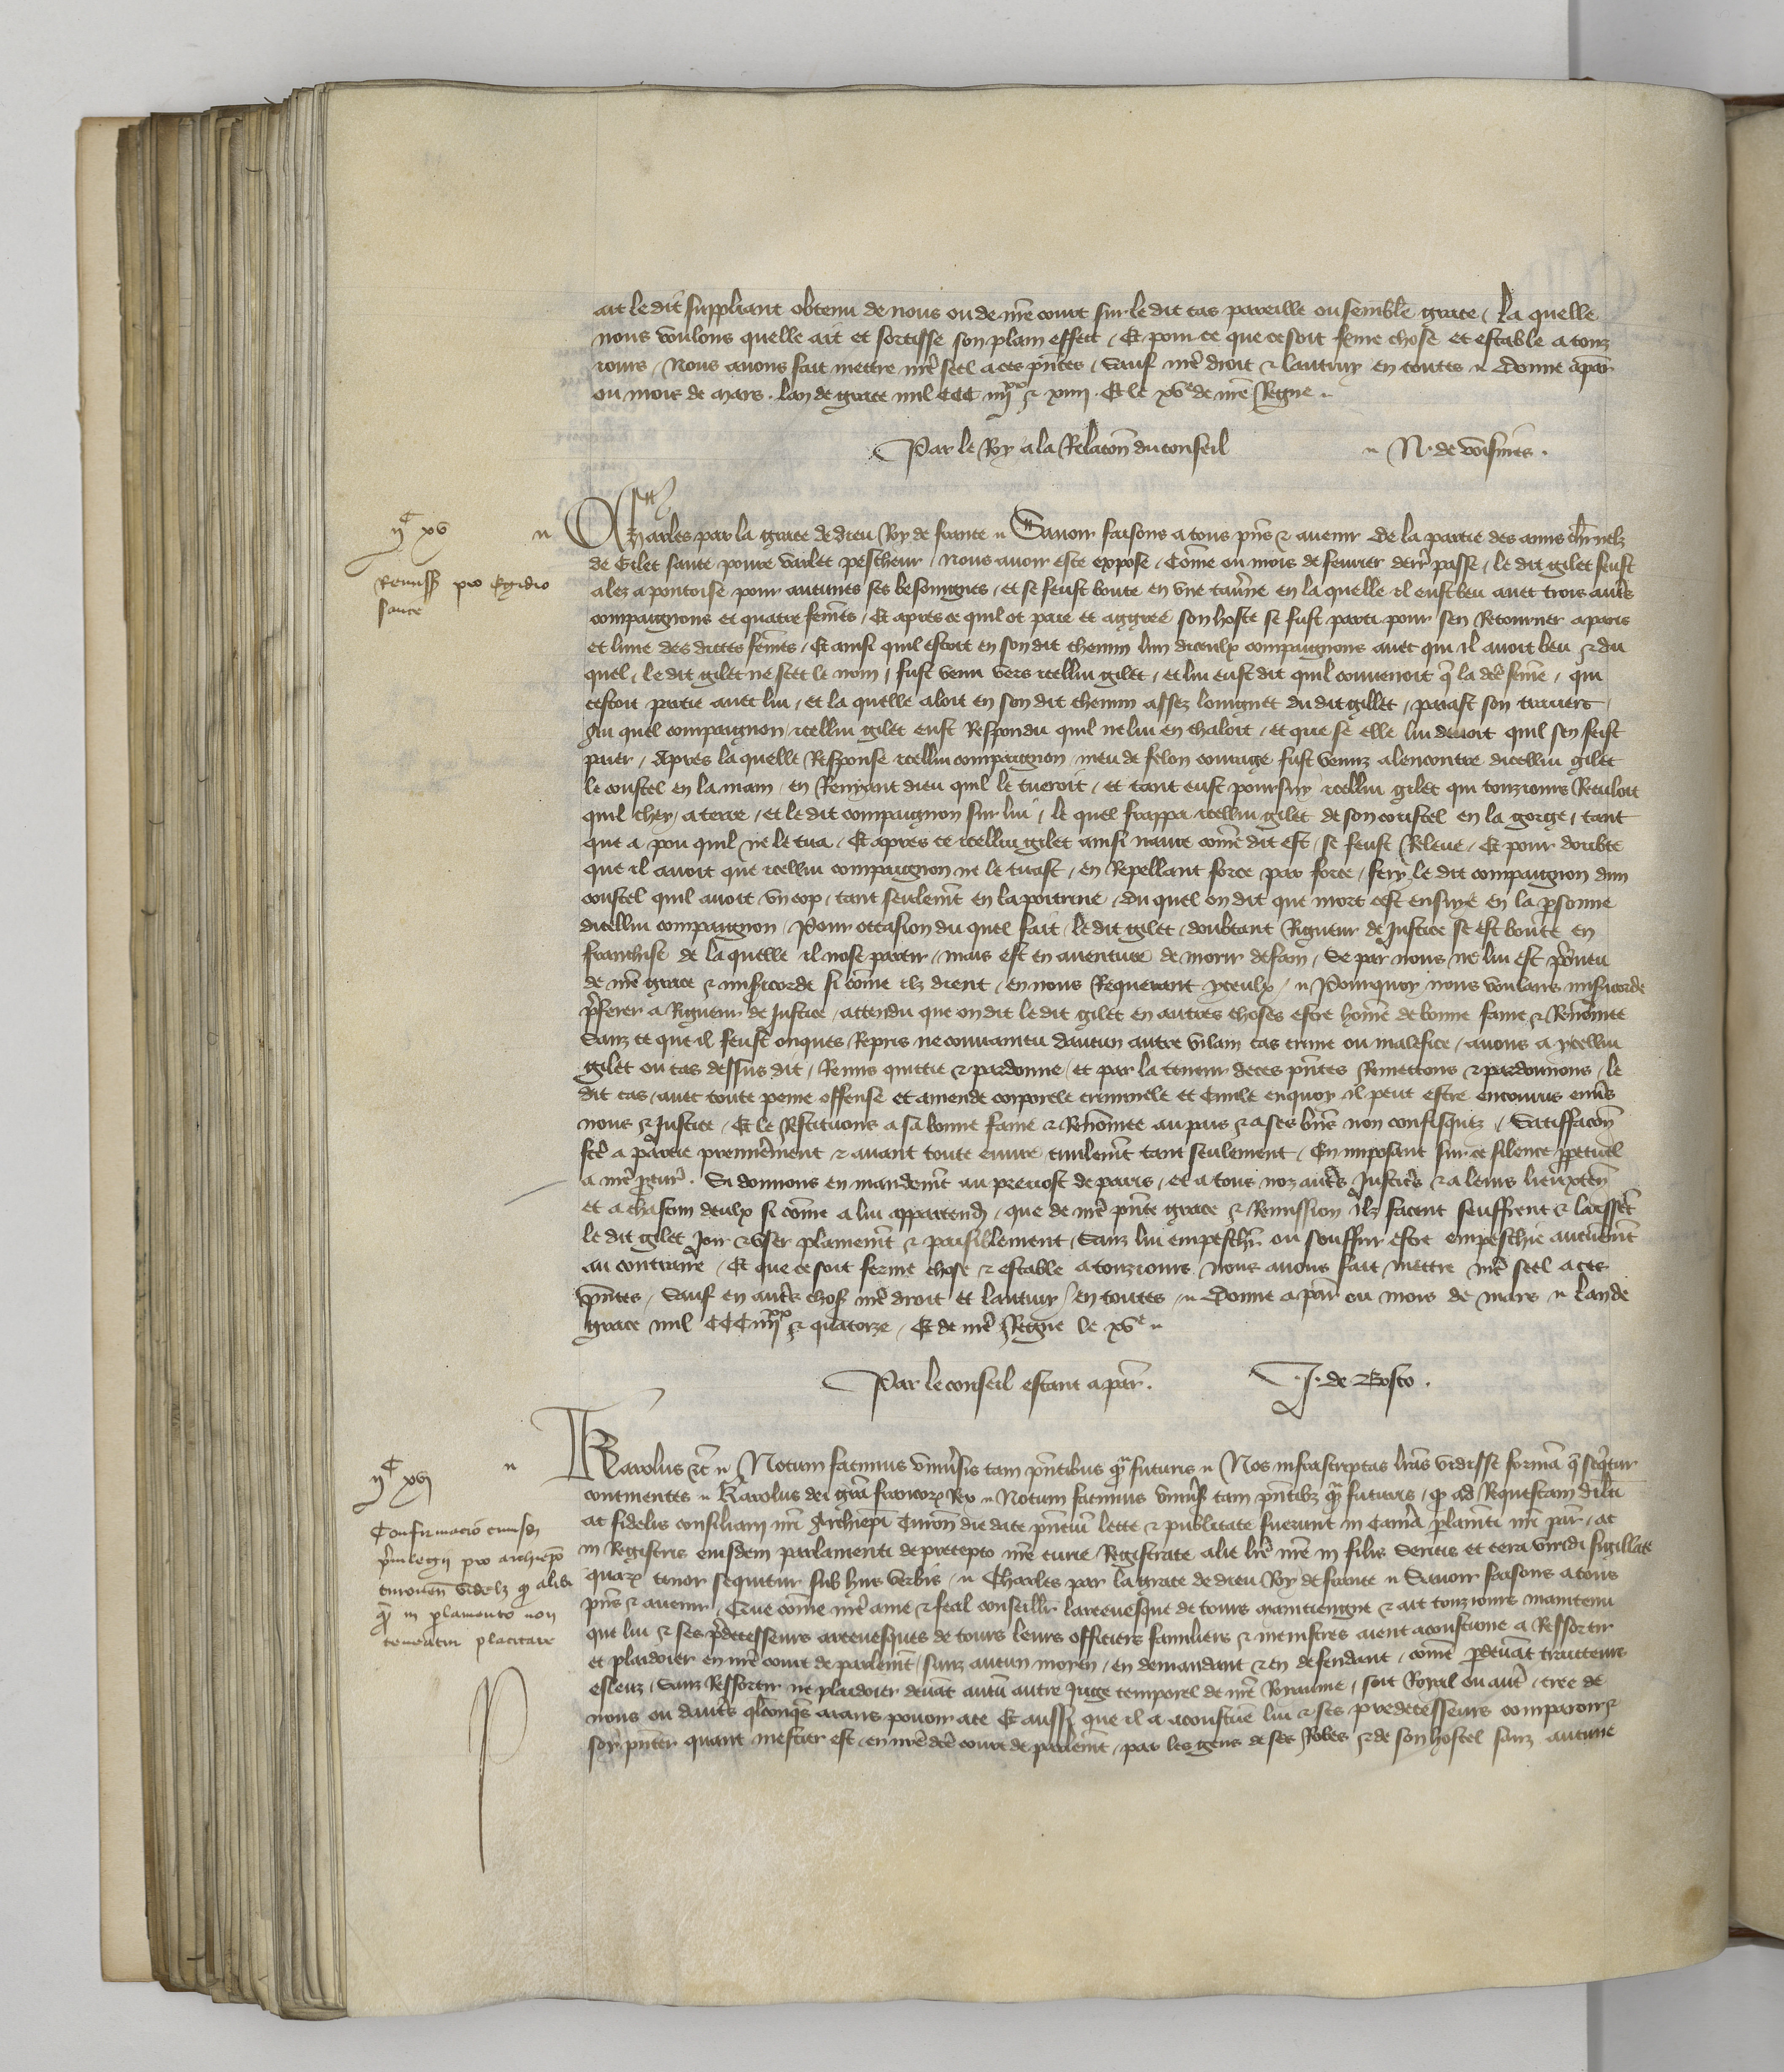 ait le dit suppliant obtenu de nous ou de nrē court sur le dit cas pareille ou semblē grace / la quelle
nous voulons quelle ait et sortisse son plain effect / Et pour ce que ce soit ferme chose et estable a touz
iours / Nous auons fait mettre nrē seel a ces pñtes / Sauf nrē droit & lautruy en toutes ~ Donne a par̄
ou mois de mars . lan de grace mil CCC iiijxx & xiiij . Et le xve de nrē Regne ~
Par le Roy a la Relacōn du conseil ~ N. de voisines .
ijC xv
Remiss pro Egidio
sauce
Charles par la grace de dieu Roy de france ~ Sauoir faisons a tous pñs & auenir De la partie des amis charnelz
de Gilet sauce poure varlet pescheur / nous auoir este expose / Cōme ou mois de feurier derr̄ passe / le dit gilet feust
alez a pontoise pour aucunes ses besoingnes / et se feust boute en vne tauñe en la quelle il eust beu auec trois autr̄s
compaignons et quatre femēs / Et apres ce quil ot paie et aggree son hoste se fust parti pour sen Retourner a paris
et lune des dictes femēs / Et ainsi quil estoit en son dit chemin lun diceulx compaignons auec qui il auoit beu & du
quel / le dit gilet ne scet le nom / fust venu vers icellui gilet / et lui eust dit quil conuenoit q̄ la dc̄e femē / qui
cestoit partie auec lui / et la quelle aloit en son dit chemin assez loingnet du dit gillet / paiast son trauers
Au quel compaignon icellui gilet eust Respondu quil ne lui en chaloit / et que se elle lui deuoit quil sen feist
paier / Apres la quelle Response icellui compaignon meu de felon courage fust venuz alencontre dicellui gilet
le coustel en la main / en Renyant dieu quil le tueroit / et tant eust poursuy icellui gilet qui touziours Reculoit
quil chey a terre / et le dit compaignon sur lui / le quel frappa icellui gilet de son coustel en la gorge / tant
que a pou quil ne le tua / Et apres ce icellui gilet ainsi naure cōme dit est / se feust Releue / Et pour doubte
que il auoit que icellui compaignon ne le tuast / en Repellant force par force / fery le dit compaignon dun
coustel quil auoit vn cop / tant seulemēt en la poitrine / du quel on dit que mort cest ensuye en la p̄sonne
dicellui compaignon / Pour occasion du quel fait / le dit gilet / doubtant Rigueur de Justice se est boute en
franchise de la quelle il nose partir / mais est en auenture de morir defain / Se par nous ne lui est p̄ueu
de nrē grace & misericorde si cōme ilz dient / en nous Requerant yceulx / ~ Pourquoy nous voulans misericorde
p̄ferer a Rigueur de Justice / attendu que on dit le dit gilet en autres choses estre homē de bonne fame & Renōmee
Sanz ce que il feust onques Repris ne conuaincu daucun autre vilain cas crime ou malefice / auons a ycellui
gilet ou cas dessus dit / Remis quittie & pardonne / et par la teneur de ces pñtes Remettons & pardonnons / le
dit cas / auec toute peine offense et amende corporele criminele et Ciuile enquoy il peut estre encourus enūs
nous & Justice / Et le Restituons a sa bonne fame & Renōmee au pais & a ses biēs non confisquez / Satiffacōn
fcē a partie premieremēnt & auant toute euure ciuilemēt tant seulement / En imposant sur ce silence p̄petuel
a nrē p̄cur̄ . Si donnons en mandemēt au preuost de paris / et a tous noz autr̄s Justicr̄s & a leurs lieux ten̄
et a chascun deulx si cōme a lui appartend̄ / que de nrē pñte grace & Remission Ilz facent seuffrent & laissēt
le dit gilet Joir & vser plainemēt & paisiblement / Sanz lui empeschr̄ ou souffrir estre empeschie aucunemēt
au contraire / Et que ce soit ferme chose & estable a touziours nous auons fait mettre nrē seel a ces
pñtes / Sauf en autr̄s chos nrē droit et lautruy en toutes / ~ Donne a par̄ ou mois de mars ~ Lan de
grace mil CCC iiijxx & quatorze / Et de nrē Regne le xve ~
Par le conseil estant a par̄ . J. de Bosco .
ijC xvj
Confirmacio cuiusd̄
p̄uilegij pro archiep̄o
turonen̄ videlz q̄ alibi
q̄ in plamento non
teneatur placitare
Karolus &c̄ ~ Notum facimus vniũsis tam pñtibus q̄ futuris ~ Nos infrascriptas lrãs vidisse formã q̄ seq̄tur
continentes ~ Karolus dei grã francorꝝ Rex ~ Notum facimus vniũs tam pñtibz q̄ futuris / q̄ ad Requestam dilc̄i
ac fidelis consiliarii nrī Archiepī Turon̄ die date pñciũ lecte & publicate fuerunt in Cam̄a plam̄ti nrī par̄ / ac
in Registris eiusdem parlamenti de precepto nrē curie Registrate alie lrē nrē in filis sericis et cera viridi sigillate
quarꝝ tenor sequitur sub hiis verbis / ~ Charles par la grace de dieu Roy de france ~ Sauoir faisons a tous
pñs & auenir / Que cōme nrē ame & feal conseillr̄ larceuesque de tours maintiengne & ait touziours maintenu
que lui & ses p̄decesseurs arceuesques de tours leurs officiers familiers & menistres aient acoustume a Ressortir
et plaidoier en nrē court de parlemēt / sanz aucun moyen / en demandant & en defendant / cōme p̄deuāt traicteurs
esleuz / Sanz Ressortir ne plaidoier deuāt aucū autre Juge temporel de nrē Royaume / soit Royal ou autr̄ / cree de
nous ou dautr̄s qlconq̄s aians pouoir a ce Et aussi que il a acoustume lui & ses predecesseurs comparoir &
soy pñter quant mestier est / en nrē dc̄e court de parlemēt / par les gens de ses Robes & de son hostel sanz aucune